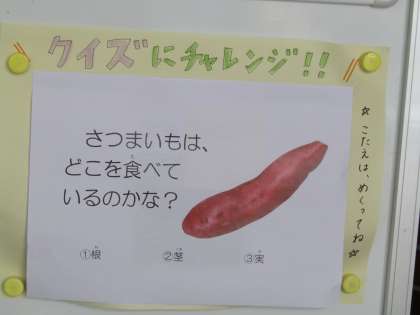 クイズにチャレンジ!!
さつまいもは、
どこを食べて
いるのかな？
①根
②茎
③実
☆こたえは、めくってね☆